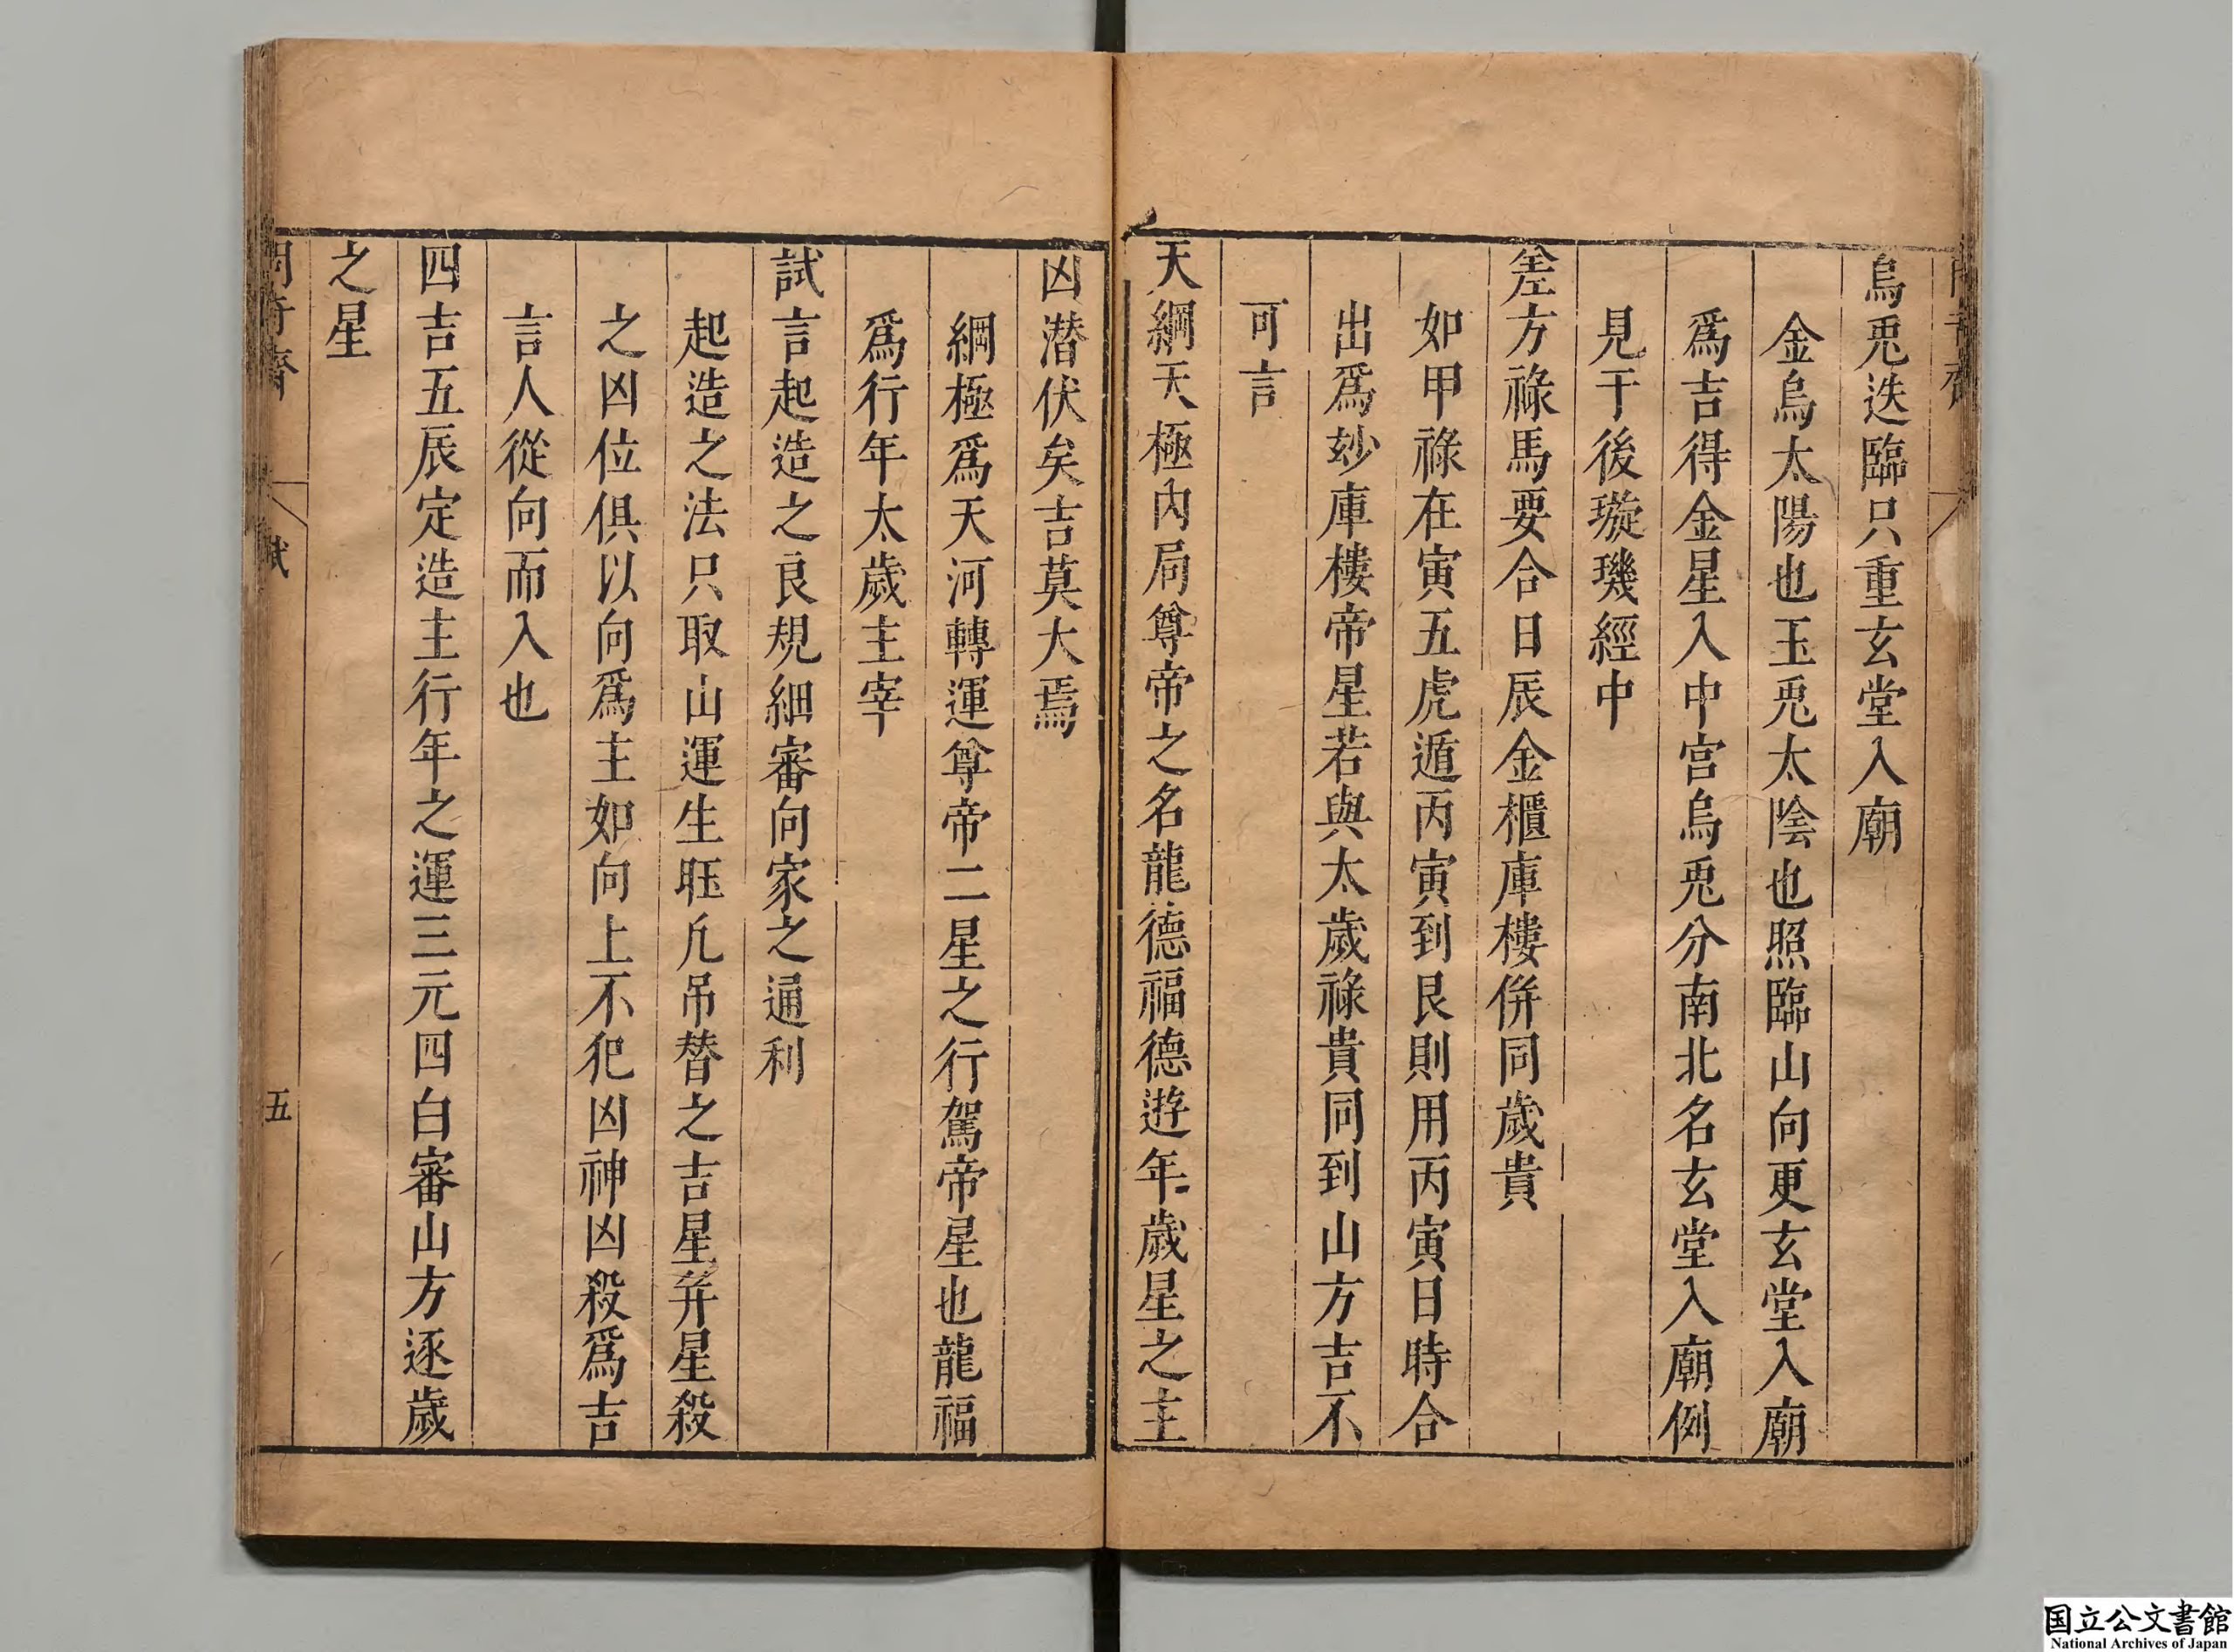 烏兎迭臨只重玄堂入廟
金烏太陽也玉兎太陰也照臨山向更玄堂入廟
爲吉得金星入中宮烏兎分南北名玄堂入廟例
見干後璇璣經中
差方祿馬要合日辰金櫃庫樓併同歲貴
如甲祿在寅五虎遁丙寅到艮則用丙寅日時合
出爲玅庫樓帝星若與太歲祿貴同到山方吉不
可言
天綱天極內局尊帝之名龍德福德遊年歲星之主
凶潜伏矣吉莫大焉
綱極爲天河轉運尊帝二星之行駕帝星也龍福
爲行年太歲主宰
試言起造之良規細審向家之通利
起造之法只取山運生旺凢吊替之吉星弁星殺
之凶位俱以向爲主如向上不犯凶神凶殺爲吉
言人從向而入也
四吉五辰定造主行年之運三元四白審山方逐歲
之星
賦
五
国立公文書館
National Archives of Japan